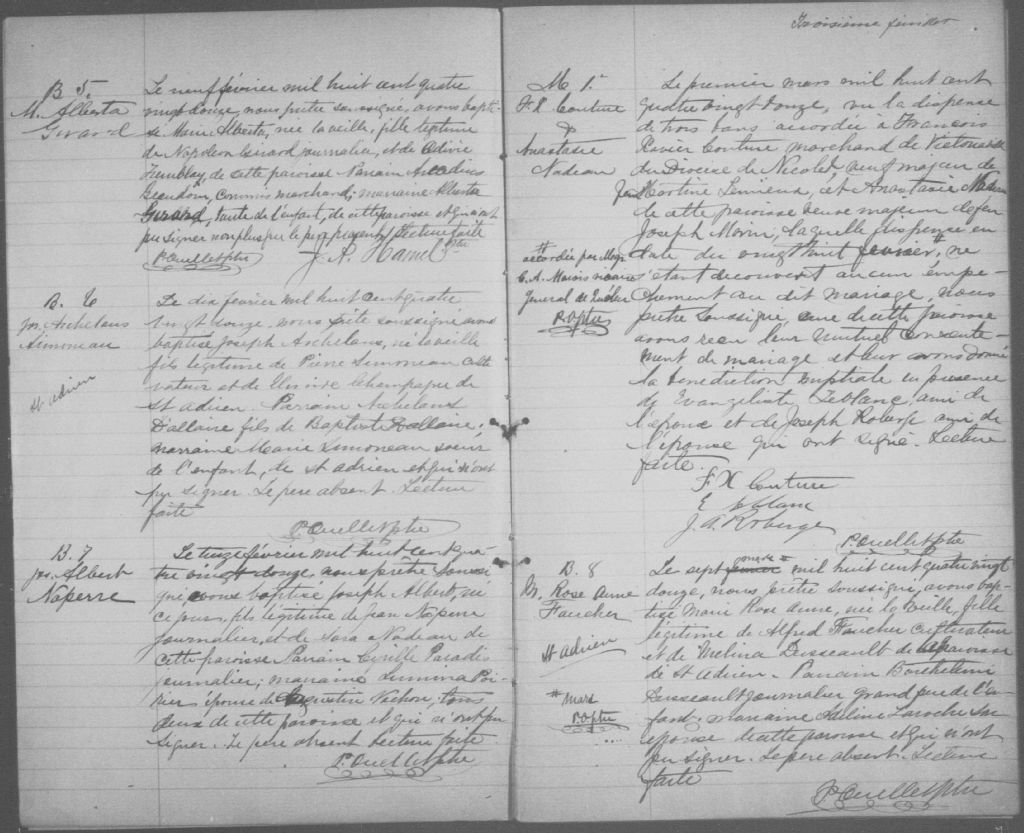 B 5.
M. Alberta
Girard
Le neuf février mil huit cent quatre
vingt douze, nous prêtre soussigné, avons bapti-
sé Marie Alberta, née la veille, fille légitime
de Napoléon Girard journalier, et de Odivie
Tremblay de cette paroisse Parrain Arcadius
Beaudoin, commis marchand; marraine Alberta
Girard, tante de l'enfant, de cette paroisse et qui n'ont
pu signer non plus que le père présent. Lecture faite
P. Ouellet ptre J. A. Hamel Ptre
B. 6
Jos. Archelaus
Simoneau
St Adrien
Le dix février mil huit cent quatre
vingt douze, nous prêtre soussigné avons
baptisé Joseph Archelaus, né la veille
fils légitime de Pierre Simoneau culti
vateur et de Champagne de
St Adrien. Parrain Archelaus
Dallaire fils de Baptiste Dallaire;
marraine Marie Simoneau soeur
de l'enfant, de St Adrien et qui n'ont
pu signer. Le père absent. Lecture
faite
P. Ouellet Ptre
B. 7
Jos. Albert
Naperre
Le treize février mil huit cent qua-
tre vingt douze, nous prêtre soussi-
gné, avons baptisé Joseph Albert, né
ce jour, fils légitime de Jean Naperre
journalier, et de Sara Nadeau de
cette paroisse Parrain Cyrille Paradis
journalier; marraine Poi-
rier épouse de Augustin Vachon, tous
deux de cette paroisse et qui n'ont pu
signer. Le père absent Lecture faite.
P. Ouellet Ptre
Troisième feuillet
M 1.
F. X. Couture
&
Anastasie
Nadeau
Le premier mars mil huit cent
quatre vingt douze, vu la dispense
de trois bans accordée à François
Xavier Couture marchand de Victoriaville
du Diocèse de Nicolet, veuf majeur de
feu Martine Lemieux, et Anastasie Nadeau
de cette paroisse veuve majeure de feu
Joseph Morin, laquelle dispense en
date du vingt huit février,# ne
s'étant découvert aucun empê-
chement au dit mariage, nous
prêtre soussigné, curé de cette paroisse
avons reçu leur mutuel consente-
ment de mariage et leur avons donné
la bénédiction nuptiale en présence
de Evangéliste Leblanc, ami de
l'époux et de Joseph Roberge ami de
l'épouse qui ont signé. Lecture
faite.
# accordée par Mgr
C. A. Marois vicaire
général de Québec
P.O ptre
F X Couture
E Leblanc
J. A. Roberge
P. Ouellet Ptre
B. 8
M. Rose Anne
Faucher
St Adrien
# mars
P.O ptre
Le sept février mars # mil huit cent quatre vingt
douze, nous, prêtre soussigné, avons bap-
tisé Marie Rose Anne, née la veille, fille
légitime de Alfred Faucher cultivateur
et de Melina Dusseault de la paroisse
de St Adrien. Parrain Barthélemi
Dusseault journalier grand père de l'en-
fant, marraine Laroche son
épouse de cette paroisse et qui n'ont
pu signer. Le père absent. Lecture
faite
P. Ouellet Ptre